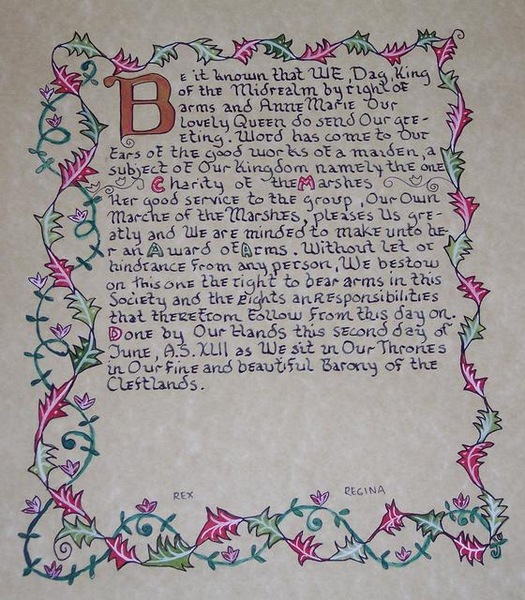 Be it known that WE, Dag, King
of the Midrealm by right of
arms and AnneMarie Our
lovely Queen do send Our gre-
eting. Word has come to Our
Ears of the good works of a maiden, a
subject of Our Kingdom namely the one
Charity of the Marshes
Her good service to the group, Our Own
Marche of the Marshes, pleases Us gre-
atly and We are minded to make unto he-
r an Award of Arms. Without let or
hindrance from any person, We bestow
on this one the right to bear arms in this
Society and the rights an Responsibilities
that therefrom Follow From this day on.
Done by Our Hands this second day of
June, A.S. XLII as We sit in Our Thrones
in Our Fine and beautiful Barony of the
Cleftlands.
REX REGINA